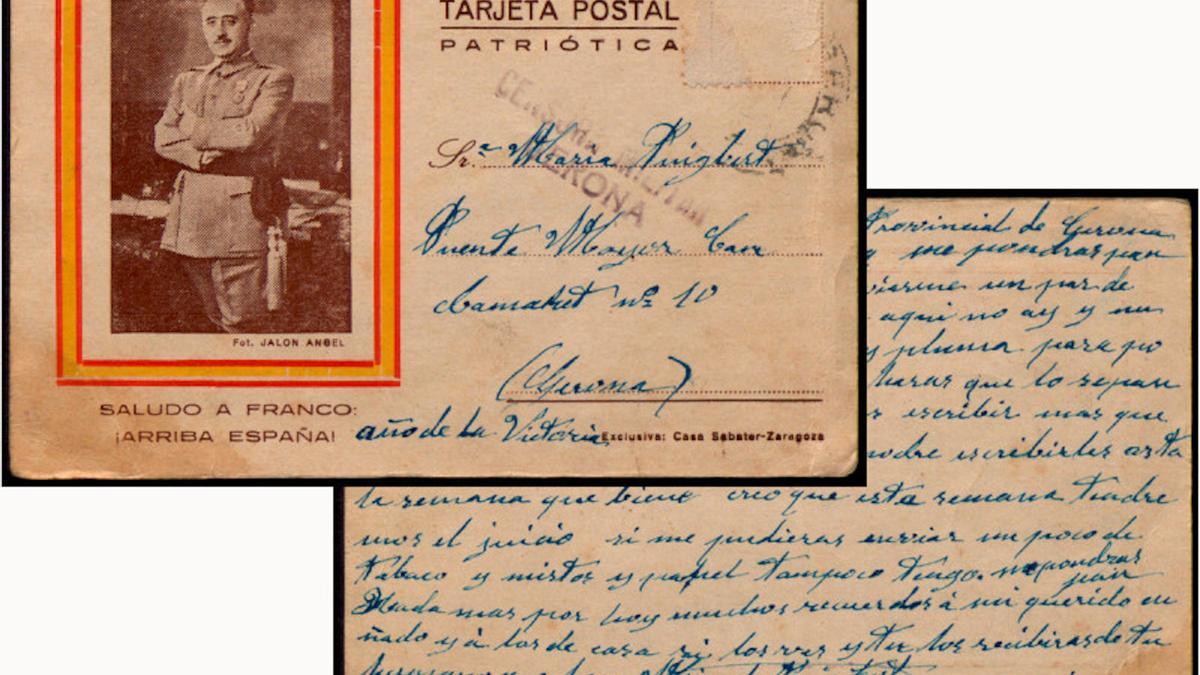 TARJETA POSTAL
PATRIÓTICA
CENSURA MILITAR
GERONA
Sr.ª Maria Puigbert
Puente Mayor Can
Camaket nº 10
(Gerona)
Fot. JALON ANGEL
SALUDO A FRANCO:
¡ARRIBA ESPAÑA!
año de la Victoria
Exclusiva: Casa Sabater-Zaragoza
Provincial de Gerona
me pondras pan
un par de
aqui no ay y un
y pluma para po
haras que lo sepan
escribir mas que
podre escribirles asta
la semana que biene creo que esta semana tendre
mos el juicio si me pudieras enviar un poco de
tabaco y mistos y papel tampoco tengo. me pondras
pan
Nada mas por hoy muchos recuerdos á mi querido cu
ñado y á los de casa si los ves y tu los recibiras de tu